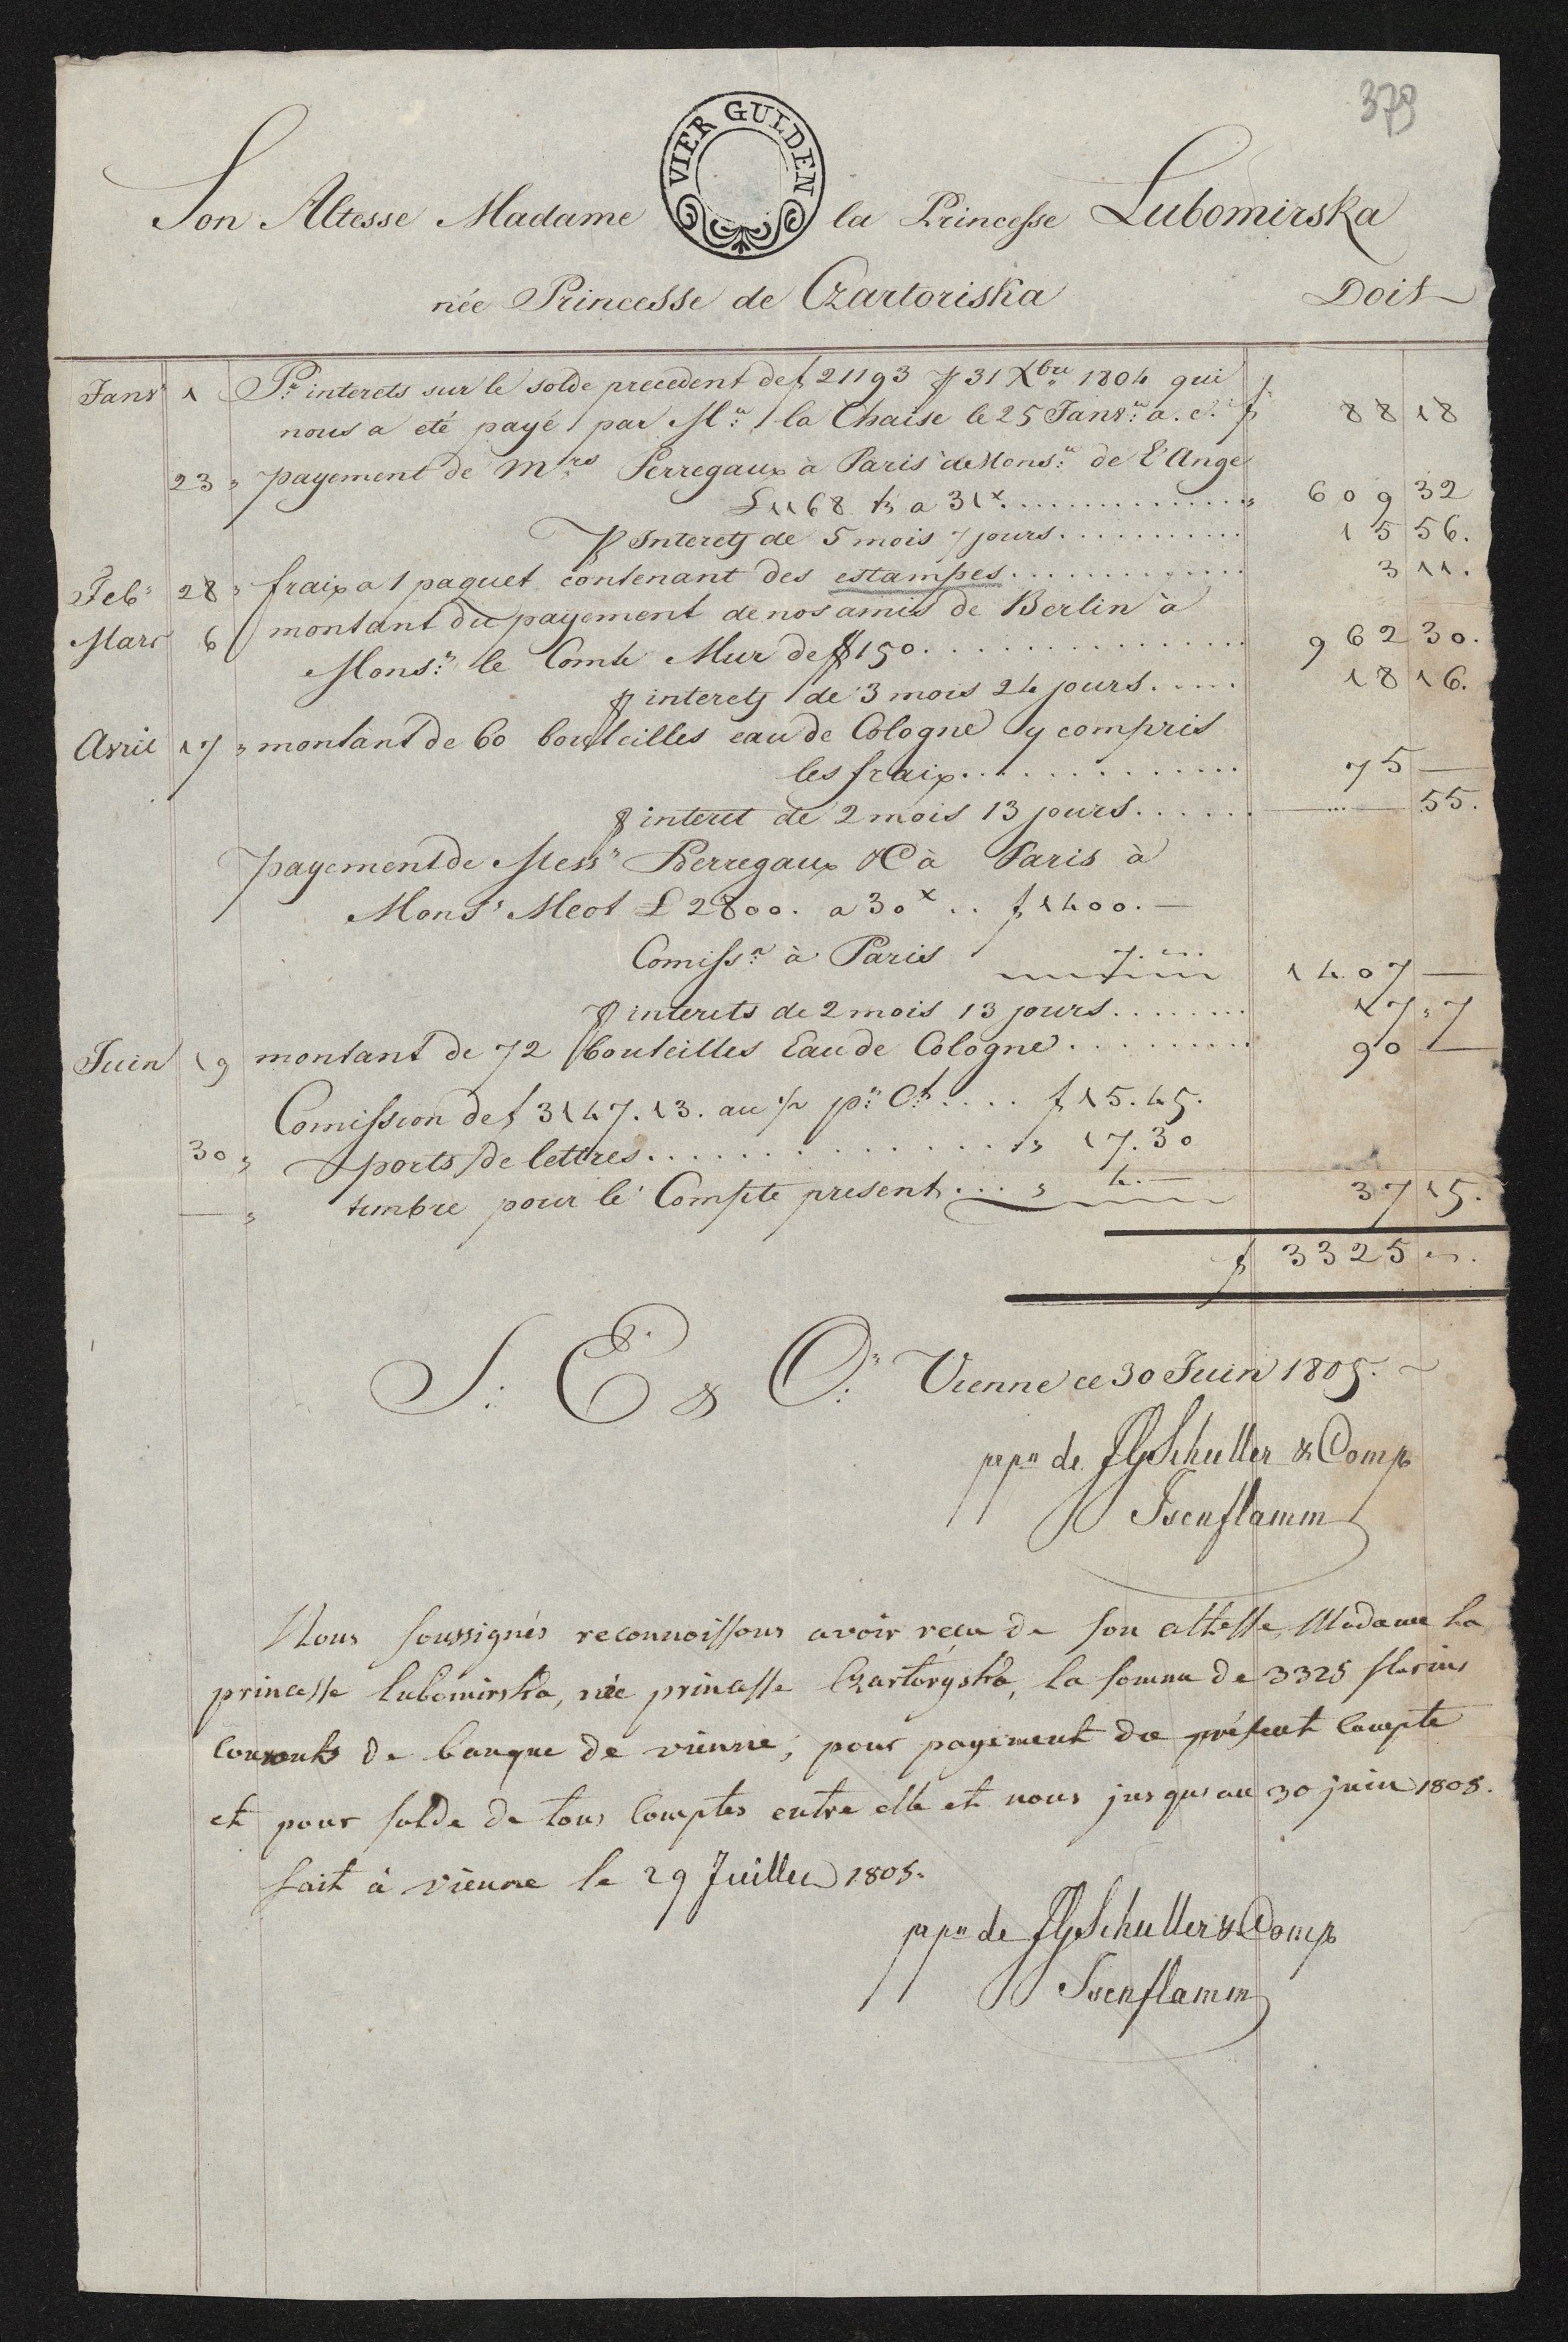 379
VIER GULDEN
Son Altesse Madame la Princesse Lubomirska
née Princesse de Czartoriska Doit
Janvr 1 Pr interets sur le solde precedent de f 21193 p 31 Xbre 1804 qui
nous a eté payé par Mr: la Chaise le 25 Janvr: a. c. f 88 18
23 " payement de Mrs Perregaux à Paris à Monsr: de l'Ange
£ 1168 ts a 31x. . . . . . . . . . . . . . . " 609 32
p Interets de 5 mois 7 jours. . . . . . . . . . . 15 56.
Febr 28 " fraix a 1 paquet contenant des estampes. . . . . . . . . . . . . 3 11.
Mars 6 montant du payement de nos amis de Berlin à
Monsr: le Comte Mur de # 150. . . . . . . . . . . . . . . . 962 30.
p interets de 3 mois 24 jours. . . . . 18 16.
Avril 17 " montant de 60 bouteilles eau de Cologne y compris
les fraix. . . . . . . . . . . . . . 75 —
p interet de 2 mois 13 jours. . . . . . — ... — 55.
payement de Messrs Perregaux & C à Paris à
Monsr Meot £ 2800. a 30x . . f 1400. —
Comissn: à Paris 7. ... 1407 —
p interets de 2 mois 13 jours. . . . . . . . 17 " 7
Juin 19 montant de 72 bouteilles Eau de Cologne. . . . . . . . . . 90 —
Comission de f 3147. 13. au ½ pr: Ct. . . . f 15. 45.
30 " ports de lettres. . . . . . . . . . . . . . " 17. 30
— " timbre pour le Compte present. . . . " 4. — 37 15.
f 3325 ~.
S: E & O: Vienne ce 30 Juin 1805.
pr pn de JG Schuller & Comp
Isenflamm
Nous soussignés reconnoissons avoir reçu de son altesse Madame la
princesse lubomirska, née princesse Czartoryska, la somme de 3325 florins
courants de banque de vienne, pour payement du présent Compte
et pour solde de tous Comptes entre elle et nous jusqu'au 30 juin 1805.
fait à vienne le 29 Juillet 1805.
pr pn de JG Schuller & Comp
Isenflamm